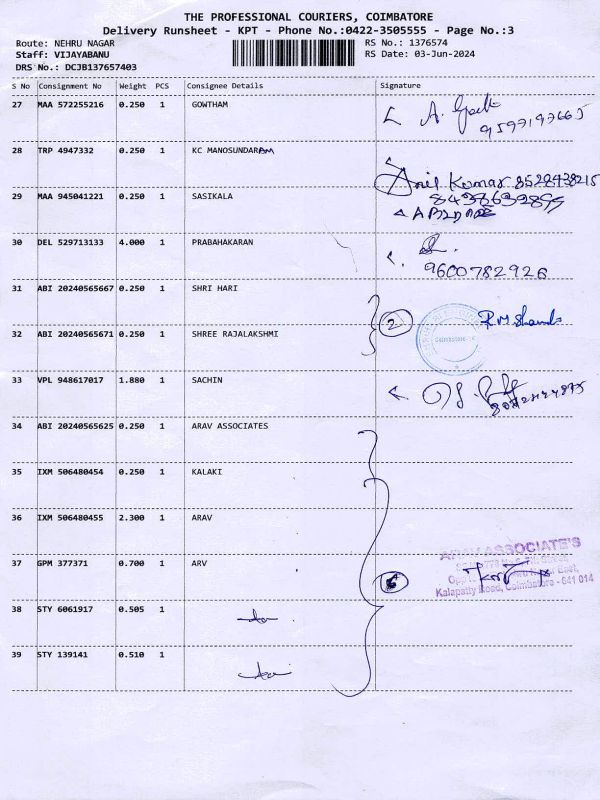 THE PROFESSIONAL COURIERS, COIMBATORE
Delivery Runsheet - KPT - Phone No.:0422-3505555 - Page No.:3
Route: NEHRU NAGAR
RS No.: 1376574
Staff: VIJAYABANU
RS Date: 03-Jun-2024
DRS No.: DCJB137657403
S No Consignment No Weight PCS Consignee Details Signature
27 MAA 572255216 0.250 1 GOWTHAM
28 TRP 4947332 0.250 1 KC MANOSUNDARAM
Anil Kumar 8528438215
29 MAA 945041221 0.250 1 SASIKALA
30 DEL 529713133 4.000 1 PRABAHAKARAN
9600782926
31 ABI 20240565667 0.250 1 SHRI HARI
2
32 ABI 20240565671 0.250 1 SHREE RAJALAKSHMI
33 VPL 948617017 1.880 1 SACHIN
34 ABI 20240565625 0.250 1 ARAV ASSOCIATES
35 IXM 506480454 0.250 1 KALAKI
36 IXM 506480455 2.300 1 ARAV
37 GPM 377371 0.700 1 ARV
6
ARAV ASSOCIATE'S
Kalapatty Road, Coimbatore - 641 014
38 STY 6061917 0.505 1
39 STY 139141 0.510 1